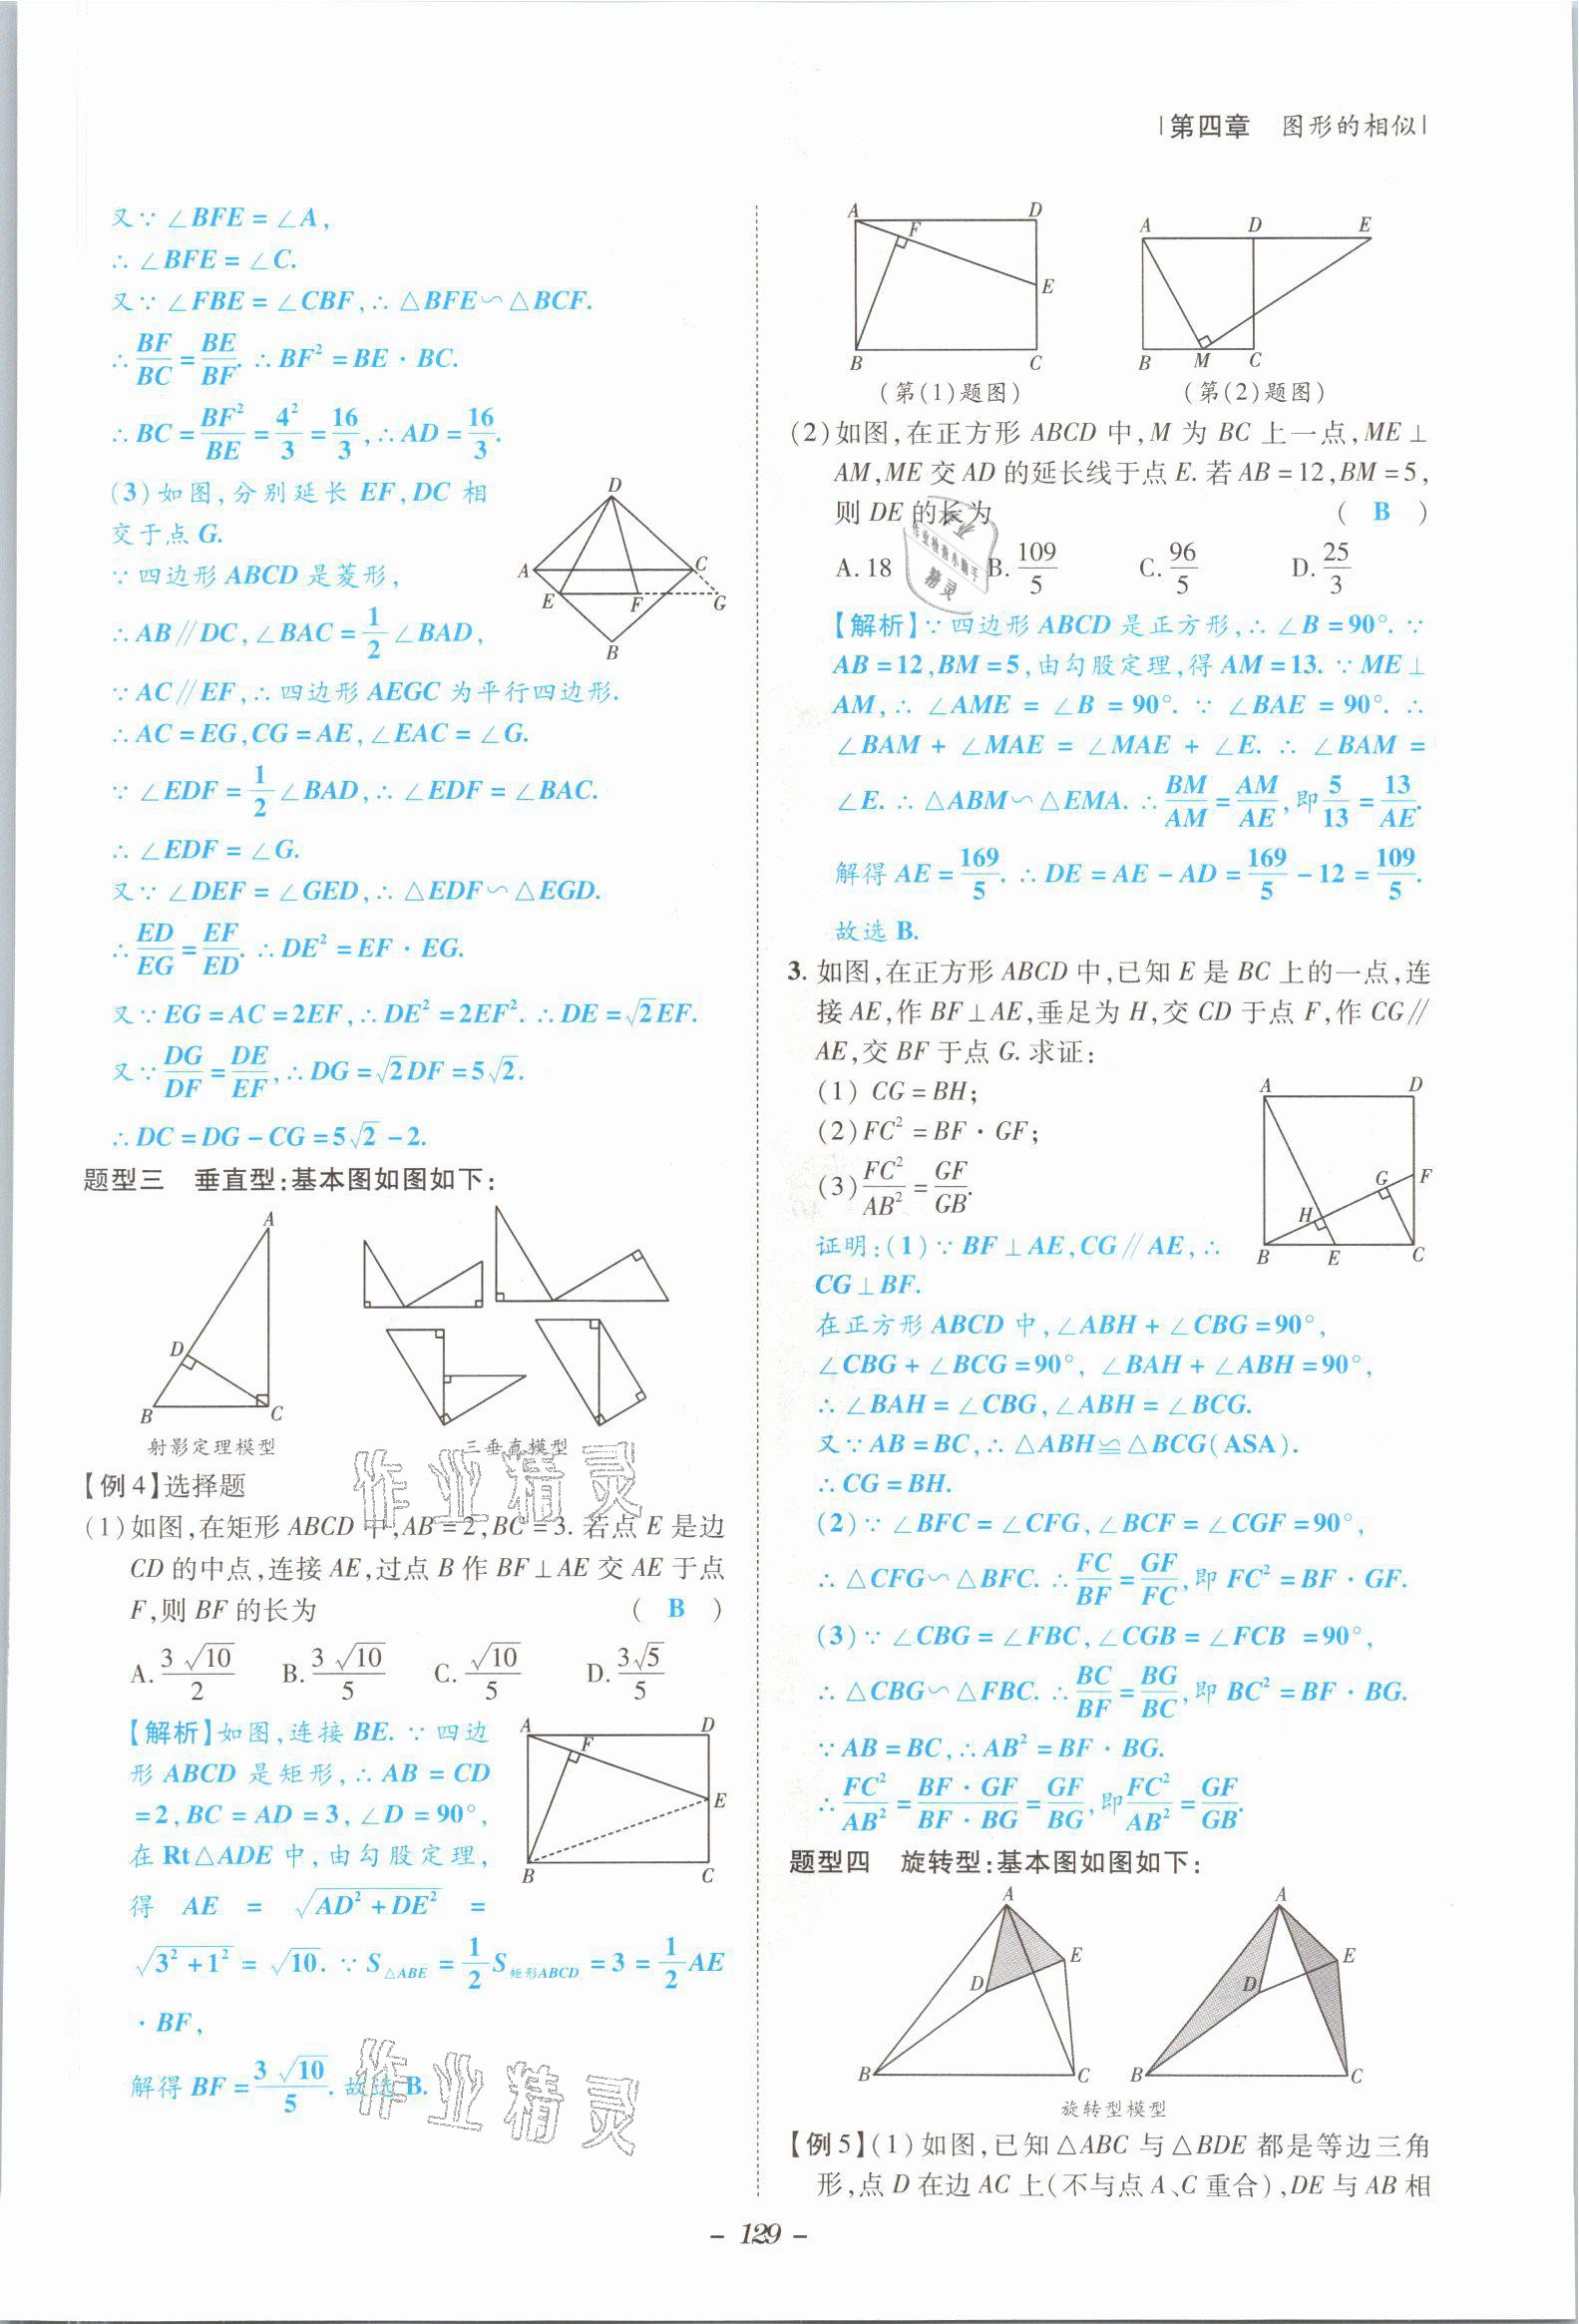 |第四章 图形的相似|
又∵∠BFE=∠A,
∴∠BFE=∠C.
又∵∠FBE=∠CBF,∴△BFE∽△BCF.
∴BF/BC=BE/BF.∴BF²=BE·BC.
∴BC=BF²/BE=4²/3=16/3,∴AD=16/3.
(3)如图,分别延长EF,DC相
交于点G.
∵四边形ABCD是菱形,
∴AB∥DC,∠BAC=1/2∠BAD,
∵AC∥EF,∴四边形AEGC为平行四边形.
∴AC=EG,CG=AE,∠EAC=∠G.
∵∠EDF=1/2∠BAD,∴∠EDF=∠BAC.
∴∠EDF=∠G.
又∵∠DEF=∠GED,∴△EDF∽△EGD.
∴ED/EG=EF/ED.∴DE²=EF·EG.
又∵EG=AC=2EF,∴DE²=2EF².∴DE=√2EF.
又∵DG/DF=DE/EF,∴DG=√2DF=5√2.
∴DC=DG-CG=5√2-2.
D
A
C
E
F
G
B
题型三 垂直型:基本图如图如下:
A
D
B
C
射影定理模型
三垂直模型
【例4】选择题
(1)如图,在矩形ABCD中,AB=2,BC=3.若点E是边
CD的中点,连接AE,过点B作BF⊥AE交AE于点
F,则BF的长为 ( B )
A.3√10/2 B.3√10/5 C.√10/5 D.3√5/5
【解析】如图,连接BE.∵四边
形ABCD是矩形,∴AB=CD
=2,BC=AD=3,∠D=90°,
在Rt△ADE中,由勾股定理,
得 AE = √(AD²+DE²) =
√(3²+1²)=√10.∵S△ABE=1/2S矩形ABCD=3=1/2AE
·BF,
解得BF=3√10/5.故选B.
A
D
F
E
B
C
A
D
F
E
B
C
(第(1)题图)
A
D
E
B
M
C
(第(2)题图)
(2)如图,在正方形ABCD中,M为BC上一点,ME⊥
AM,ME交AD的延长线于点E.若AB=12,BM=5,
则DE的长为 ( B )
A.18 B.109/5 C.96/5 D.25/3
【解析】∵四边形ABCD是正方形,∴∠B=90°.∵
AB=12,BM=5,由勾股定理,得AM=13.∵ME⊥
AM,∴∠AME=∠B=90°.∵∠BAE=90°.∴
∠BAM+∠MAE=∠MAE+∠E.∴∠BAM=
∠E.∴△ABM∽△EMA.∴BM/AM=AM/AE,即5/13=13/AE.
解得AE=169/5.∴DE=AE-AD=169/5-12=109/5.
故选B.
3.如图,在正方形ABCD中,已知E是BC上的一点,连
接AE,作BF⊥AE,垂足为H,交CD于点F,作CG∥
AE,交BF于点G.求证:
(1) CG=BH;
(2)FC²=BF·GF;
(3)FC²/AB²=GF/GB.
A
D
G
F
H
B
E
C
证明:(1)∵BF⊥AE,CG∥AE,∴
CG⊥BF.
在正方形ABCD中,∠ABH+∠CBG=90°,
∠CBG+∠BCG=90°,∠BAH+∠ABH=90°,
∴∠BAH=∠CBG,∠ABH=∠BCG.
又∵AB=BC,∴△ABH≌△BCG(ASA).
∴CG=BH.
(2)∵∠BFC=∠CFG,∠BCF=∠CGF=90°,
∴△CFG∽△BFC.∴FC/BF=GF/FC,即FC²=BF·GF.
(3)∵∠CBG=∠FBC,∠CGB=∠FCB =90°,
∴△CBG∽△FBC.∴BC/BF=BG/BC,即BC²=BF·BG.
∵AB=BC,∴AB²=BF·BG.
∴FC²/AB²=BF·GF/BF·BG=GF/BG,即FC²/AB²=GF/GB.
题型四 旋转型:基本图如图如下:
A
E
D
B
C
A
E
D
B
C
旋转型模型
【例5】(1)如图,已知△ABC与△BDE都是等边三角
形,点D在边AC上(不与点A、C重合),DE与AB相
- 129 -
作业精灵
作业精灵
作业
作业检查小助手
精灵